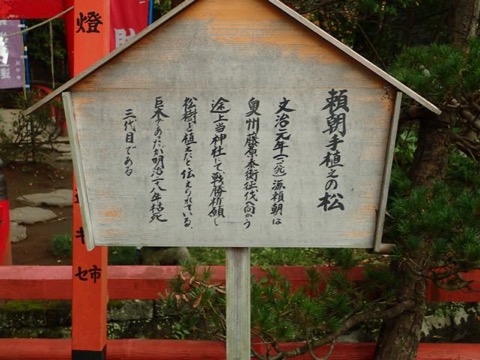 頼朝手植之の松
文治元年(一一八五)源頼朝は
奥州藤原泰衡征伐へ向かう
途上当神社にて戦勝祈願し
松樹を植えたと伝えられている
巨木であったが明治二八年枯死
三代目である
燈
市